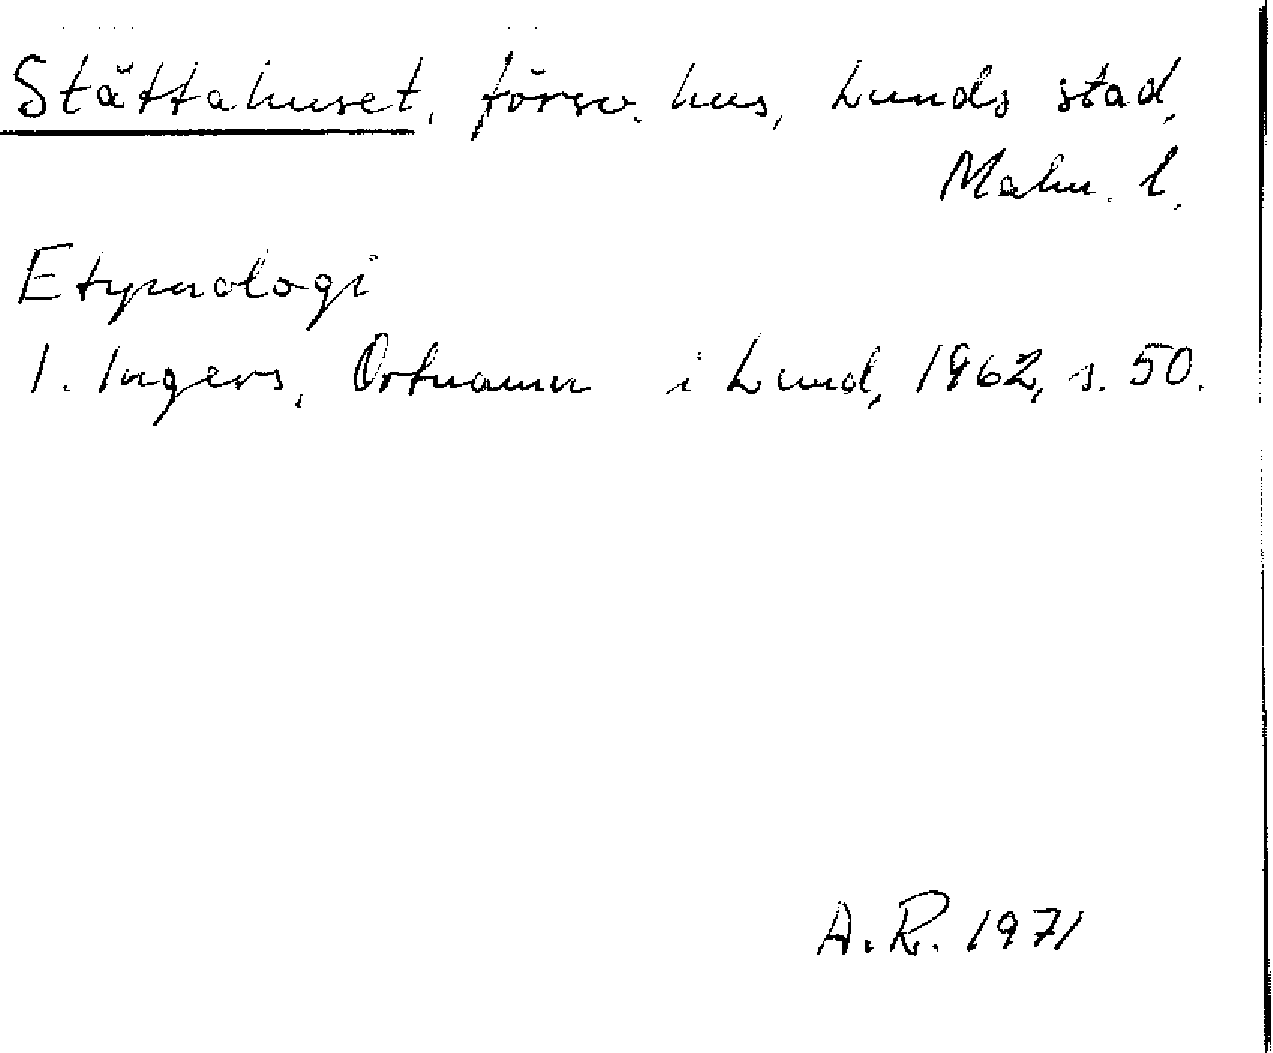 Stättahuset, försv. hus, Lunds stad,
Malm. l.
Etymologi
I. Ingers, Ortnamn i Lund, 1962, s. 50.
A.R. 1971